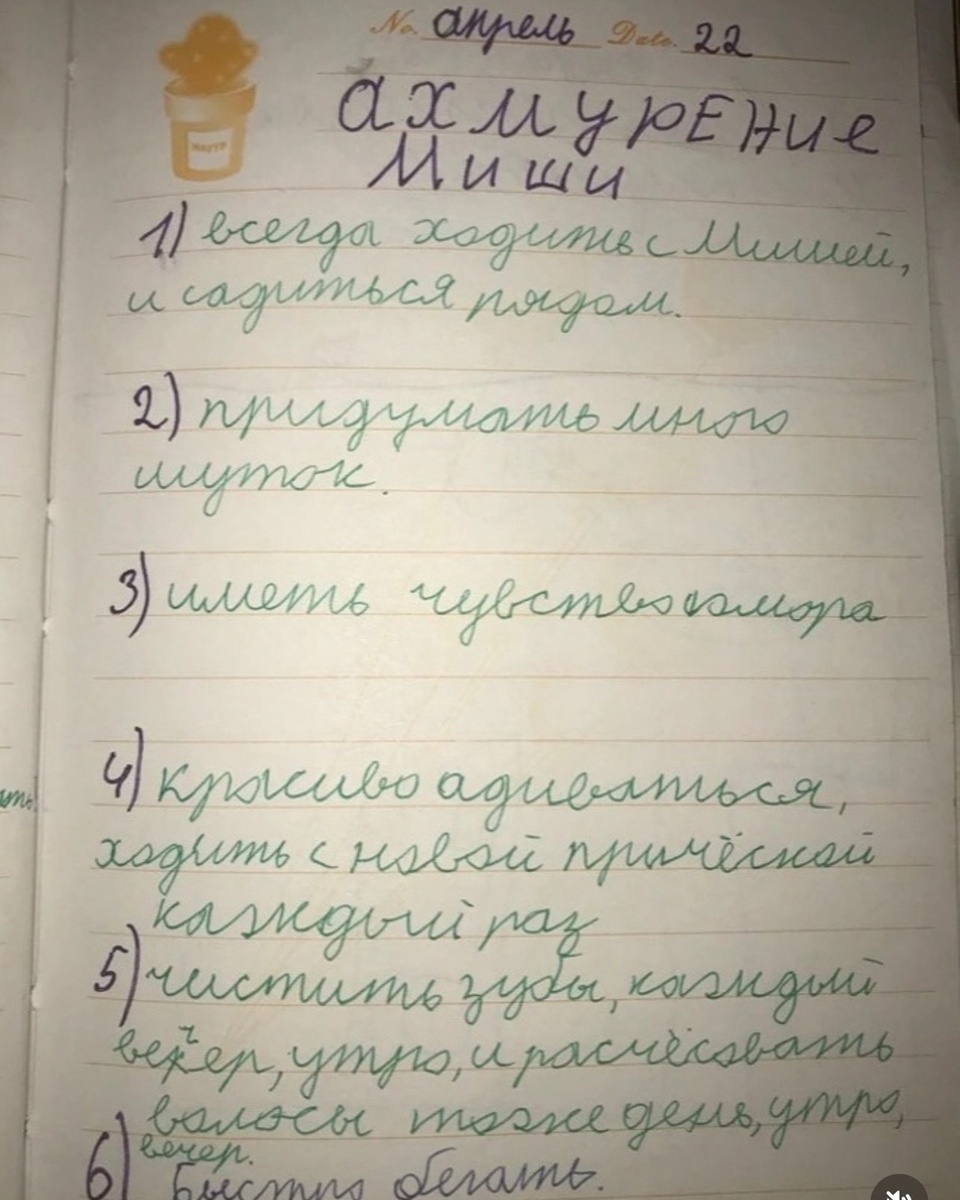 No. апрель Date. 22
ахмурение
Миши
1) всегда ходить с Мишей,
и садиться рядом.
2) придумать много
шуток.
3) иметь чувство юмора
4) красиво адиваться,
ходить с новой причёской
каждый раз
5) чистить зубы, каждый
вечер, утро, и расчёсовать
волосы тоже день, утро,
вечер.
6) Быстро бегать.